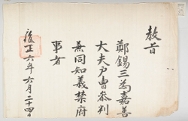 敎旨
鄭錫三爲嘉善
大夫戶曹參判
兼同知義禁府
事者
六年六月二十四